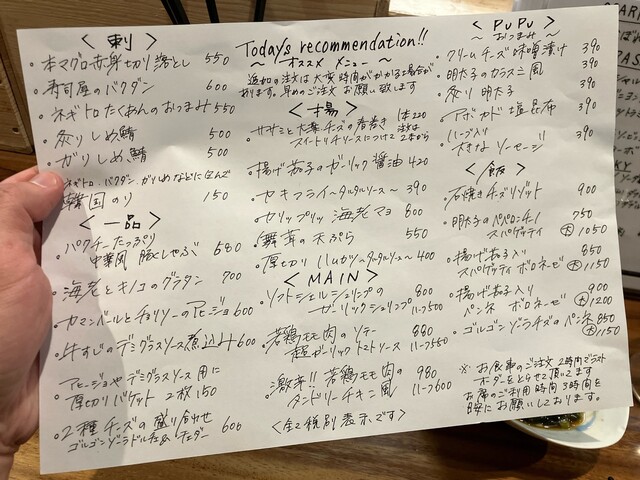 ＜刺＞
・本マグロ赤身切り落とし 550
・寿司屋のバクダン 600
・ネギトロたくあんのおつまみ 550
・炙りしめ鯖 500
・ガリしめ鯖 500
・ネギトロ、バクダン、ガリしめなどに包んで
韓国のり 150
＜一品＞
・パクチーたっぷり
中華風 豚しゃぶ 680
・海老とキノコのグラタン 700
・カマンベールとチョリソーのアヒージョ 600
・牛すじのデミグラスソース煮込み 600
・アヒージョやデミグラスソース用に
厚切りバケット 2枚 150
・2種チーズの盛り合せ
ゴルゴンゾーラドルチェ&チェダー 600
Today's recommendation!!
～ オススメ メニュー ～
追加の注文は大変時間がかかる場合が
あります。早めのご注文 お願い致します
＜揚＞
・ササミと大葉チーズの春巻き 1本220
スイートチリソースにつけて 注文は2本から
・揚げ茄子のガーリック醤油 420
・カキフライ～タルタルソース～ 390
・ケリップリッ 海老マヨ 800
・舞茸の天ぷら 550
・厚切りハムカツ～タルタルソース～ 400
＜MAIN＞
・ソフトシェルシュリンプの 880
ガーリックシュリンプ ハーフ500
・若鶏モモ肉のソテー 880
超ガーリックトマトソース ハーフ550
・激辛!! 若鶏モモ肉の 980
タンドリーチキン風 ハーフ600
＜全て税別表示です＞
＜PuPu＞
～ おつまみ ～
・クリームチーズ味噌漬け 390
・明太子のカラスミ風 390
・炙り 明太子 390
・アボカド塩昆布 390
・ハーブ入り
大きなソーセージ 390
＜飯＞
・石焼きチーズリゾット 900
・明太子のペペロンチーノ 750
スパゲッティ 大1050
・揚げ茄子入り 850
スパゲッティ ボロネーゼ 大1150
・揚げ茄子入り 900
ペンネ ボロネーゼ 大1200
・ゴルゴンゾーラチーズのペンネ 850
大1150
※お食事のご注文 2時間でラスト
オーダーをとらせて頂いてます
お席のご利用時間 3時間を
目安にお願いしております。